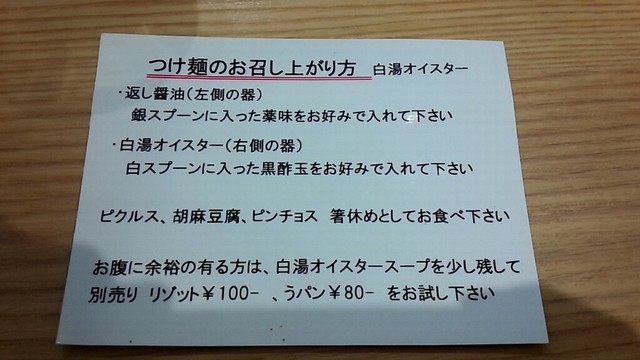 つけ麺のお召し上がり方 白湯オイスター
・返し醤油(左側の器)
銀スプーンに入った薬味をお好みで入れて下さい
・白湯オイスター(右側の器)
白スプーンに入った黒酢玉をお好みで入れて下さい
ピクルス、胡麻豆腐、ピンチョス 箸休めとしてお食べ下さい
お腹に余裕の有る方は、白湯オイスタースープを少し残して
別売り リゾット¥100- 、うパン¥80- をお試し下さい